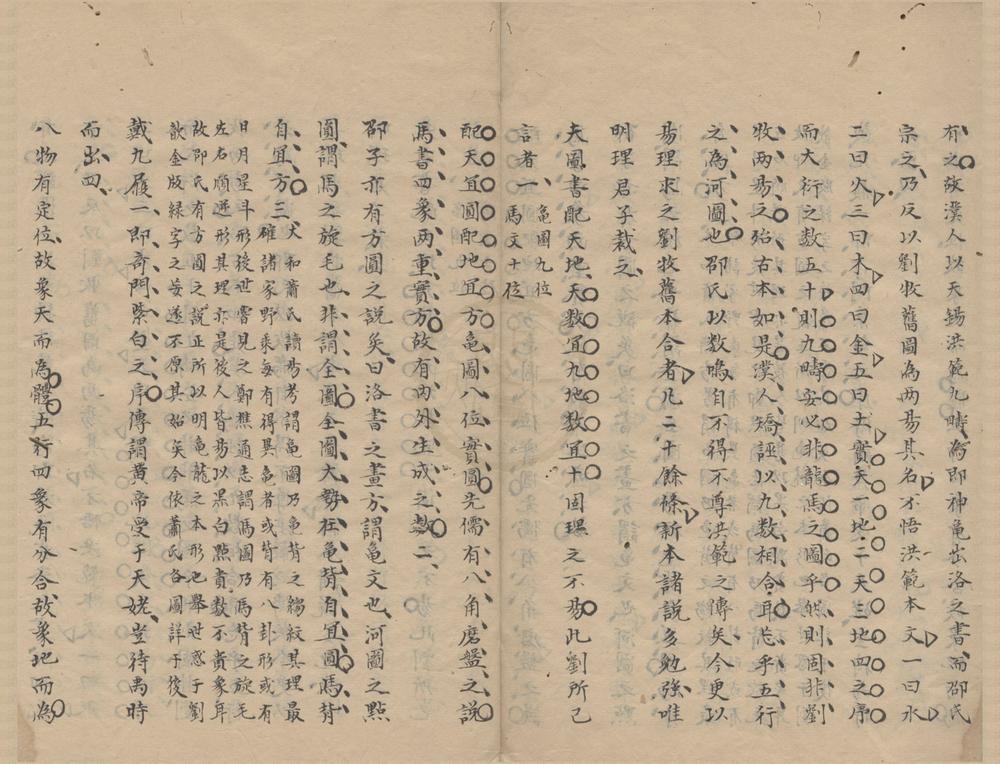 有之故漢人以天錫洪範九疇為即神龜出洛之書而邵氏
宗之乃反以劉牧舊圖為两易其名不悟洪範本文一曰水
二曰火三曰木四曰金五曰土實天一地二天三地四之序
而大衍之数五十則九疇安必非龍馬之圖乎然則固非劉
牧两易之殆古本如是漢人矯誣以九数相合耳恐乎五行
之為河圖也邵氏以数鳴自不得不尊洪範之傳矣今更以
易理求之劉牧舊本合者凡二十餘條新本諸說多勉強唯
明理君子裁之
夫圖書配天地天数宜九地数宜十固理之不易此劉所已
言者一龜圖九位馬文十位
配天宜圓配地宜方龜圖八位實圓先儒有八角磨盤之說
馬書四象两重實方故有内外生成之数二
邵子亦有方圓之說矣曰洛書之畫方謂龜文也河圖之點
圓謂馬之旋毛也非謂全圖全圖大勢在龜背自宜圓馬背
自宜方三大和蕭氏讀易考謂龜圖乃龜背之縐紋其理最
確諸家野乘每有得異龜者或背有八卦形或有
日月星斗形後世嘗見之鄭樵通志謂馬圖乃馬背之旋毛
左右順逆形其理亦是後人皆易以黒白點貴数不貴象耳
故邵氏有方圓之說正所以明龜龍之本形也舉世惑于劉
歆金版緑字之妄遂不原其始矣今依蕭氏各圖詳于後
戴九履一即奇門紫白之序傳謂黄帝受于天姥豈待禹時
而出四
八物有定位故象天而為體五行四象有分合故象地而為